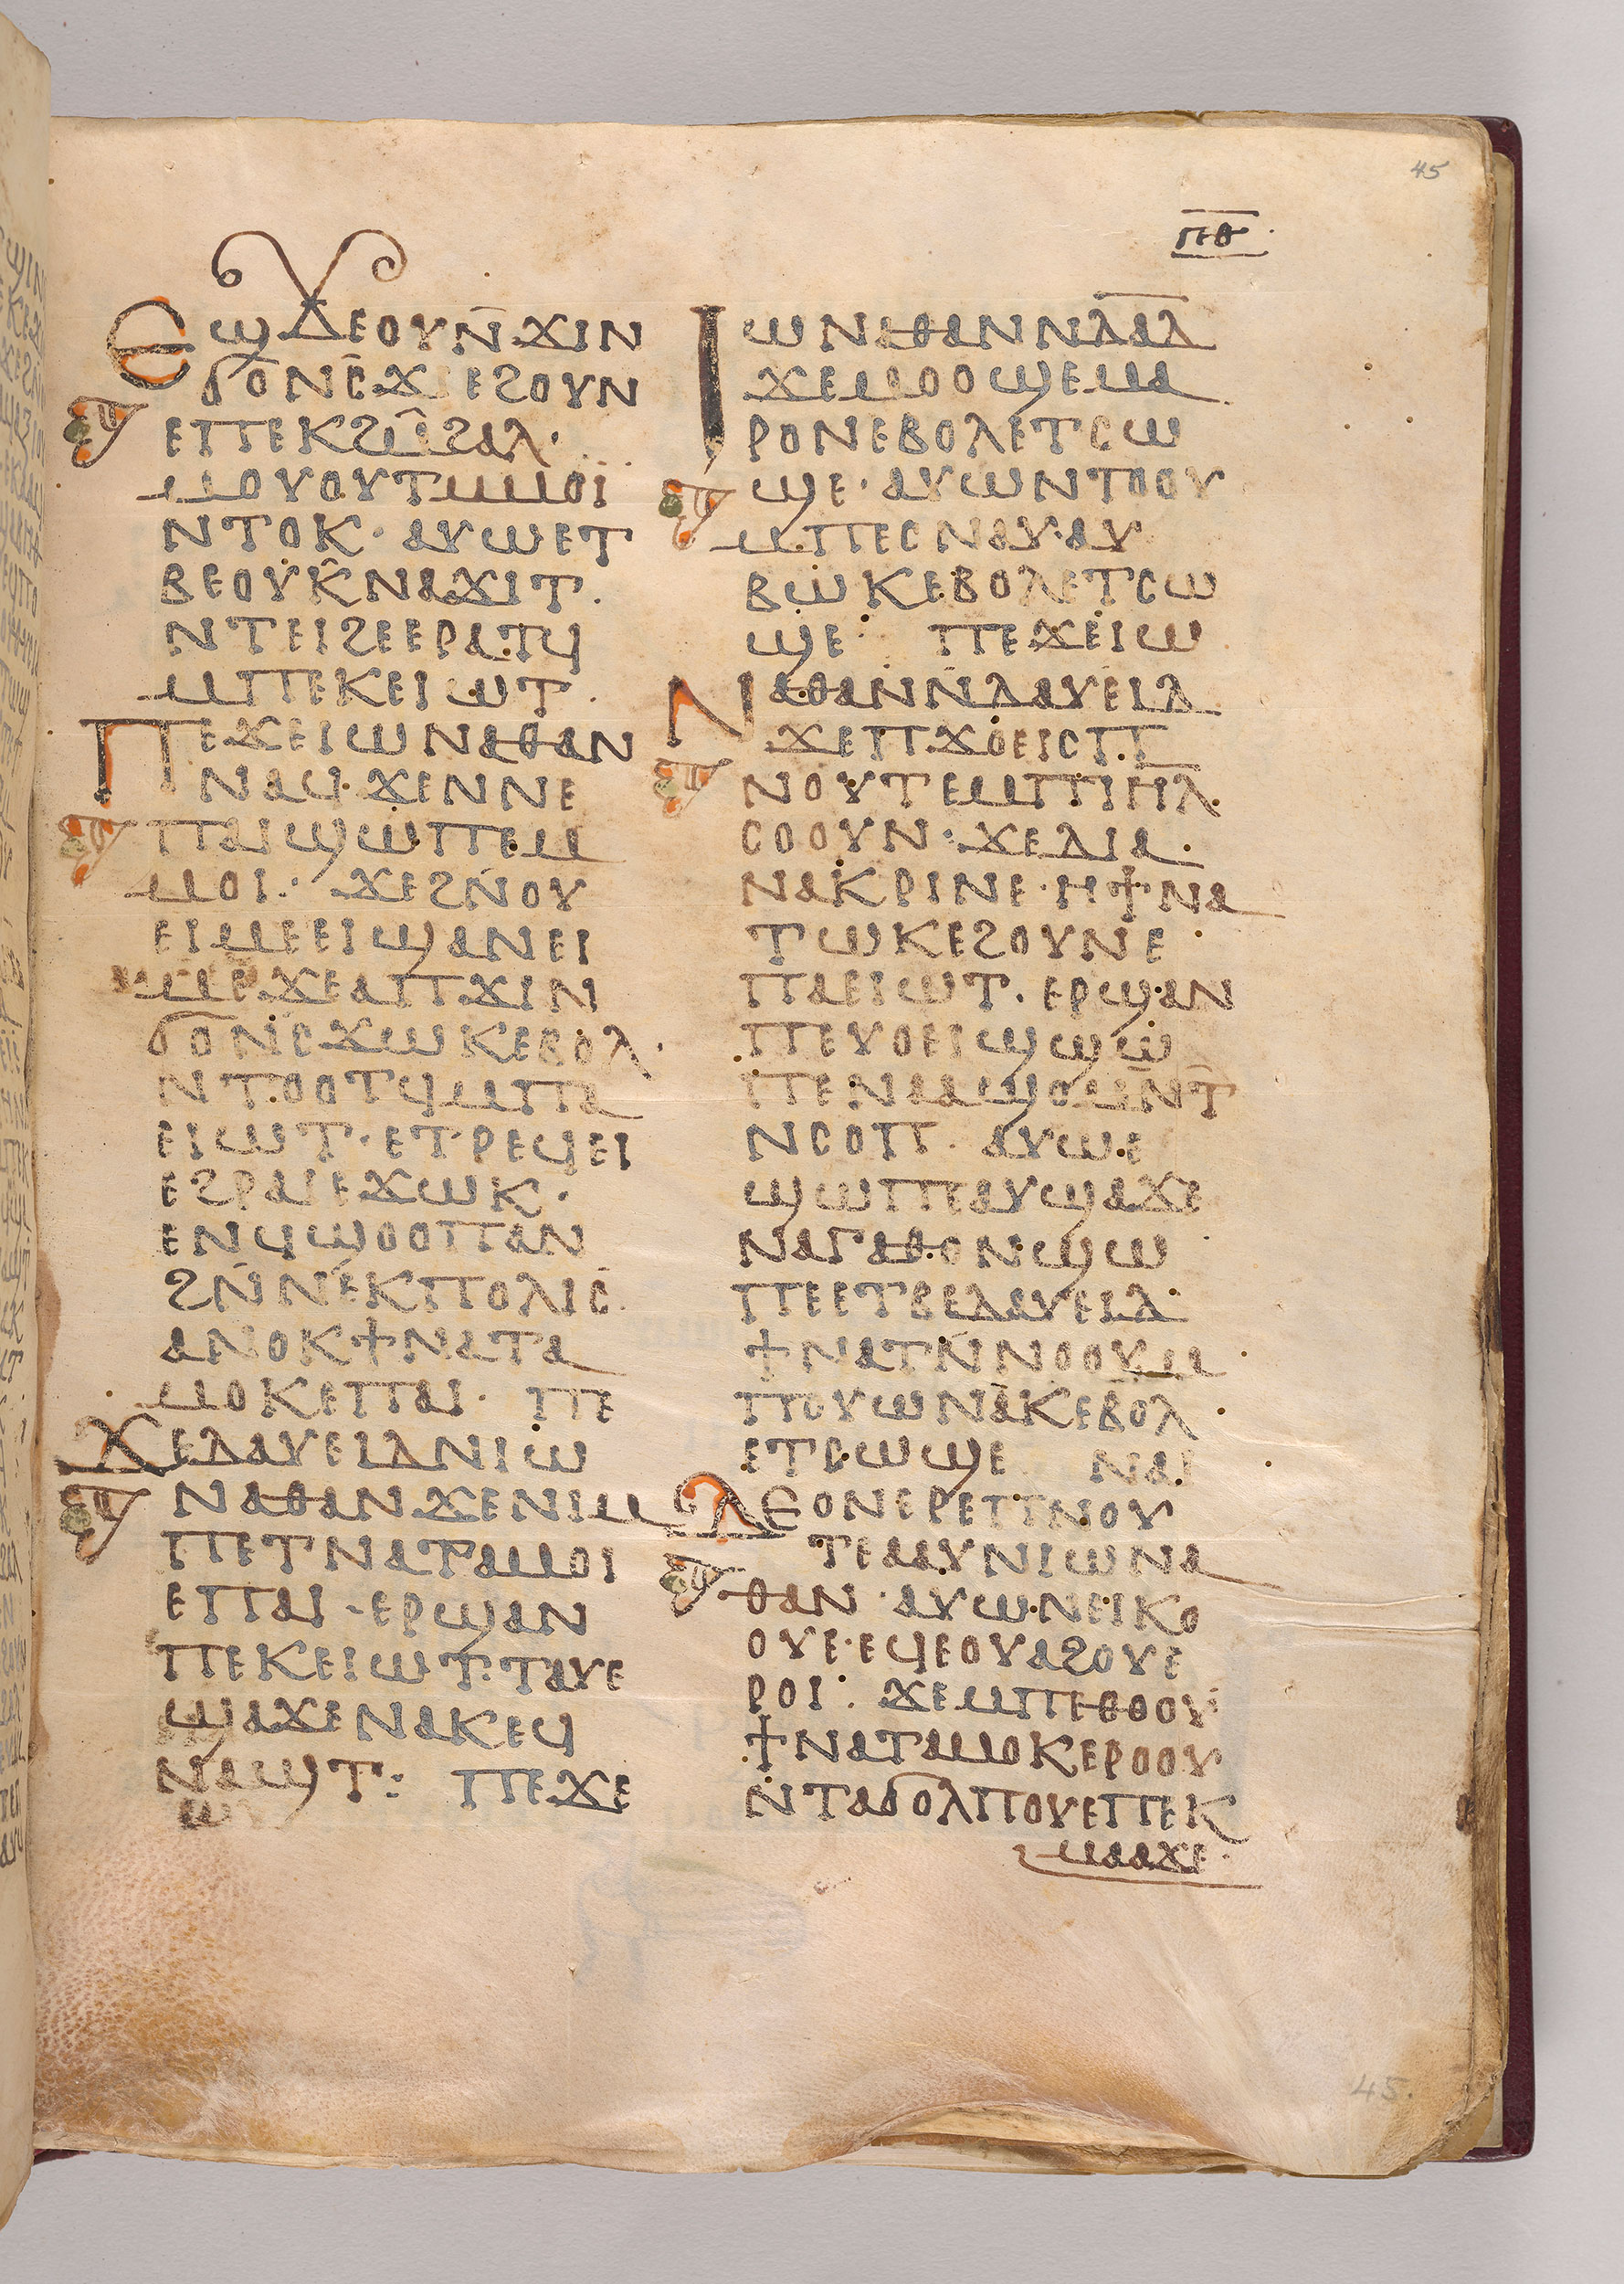 45
ⲡⲑ
ⲉϣϫⲉⲟⲩⲛ̄ϫⲓⲛ
ϭⲟⲛⲥ̄ϫ ⲉϩⲟⲩⲛ
ⲉⲡⲉⲕϩⲙ̄ϩⲁⲗ·
ⲙⲟⲩⲟⲩⲧⲙⲙⲟⲓ̈
ⲛⲧⲟⲕ· ⲁⲩⲱⲉⲧ
ⲃⲉⲟⲩⲕ̄ⲛⲁϫⲓⲧ·
ⲛⲧⲉⲓϩⲉⲉⲣⲁⲧϥ
ⲙⲡⲉⲕⲉⲓⲱⲧ·
ⲡⲉϫⲉⲓⲱⲛⲁⲑⲁⲛ
ⲛⲁϥ· ϫⲉⲛⲛⲉ
ⲡⲁⲓϣⲱⲡⲉⲙ
ⲙⲟⲓ· ϫⲉϩⲛ̄ⲟⲩ
ⲉⲓⲙⲉⲉⲓϣⲁⲛⲉⲓ
ⲙⲉϫⲉⲁⲡϫⲓⲛ
ϭⲟⲛⲥϫⲱⲕⲉⲃⲟⲗ·
ⲛⲧⲟⲟⲧϥⲙⲡⲁ
ⲉⲓⲱⲧ· ⲉⲧⲣⲉϥⲉⲓ
ⲉϩⲣⲁⲓⲉϫⲱⲕ·
ⲉⲛϥϣⲟⲟⲡⲁⲛ
ϩⲛ̄ⲛⲉⲕⲡⲟⲗⲓⲥ
ⲁⲛⲟⲕϯⲛⲁⲧⲁ
ⲙⲟⲕⲉⲡⲁⲓ· ⲡⲉ
ϫⲉⲇⲁⲩⲉⲓⲇⲛⲓⲱ
ⲛⲁⲑⲁⲛϫⲉⲛⲓⲙ
ⲡⲉⲧⲛⲁⲧⲁⲙⲟⲓ
ⲉⲡⲁⲓ· ⲉⲣϣⲁⲛ
ⲡⲉⲕⲉⲓⲱⲧ·ⲧⲁⲩⲉ
ϣⲁϫⲉⲛⲁⲕⲉϥ
ⲛⲁϣⲧ: ⲡⲉϫⲉ
ⲓⲱⲛⲁⲑⲁⲛⲛⲇⲁⲇ
ϫⲉⲙⲟⲟϣⲉⲙⲁ
ⲣⲟⲛⲉⲃⲟⲗⲉⲧⲥⲱ
ϣⲉ· ⲁⲩⲱⲛⲧⲟⲟⲩ
ⲙⲡⲉⲥⲛⲁⲩ·ⲁⲩ
ⲃⲱⲕⲉⲃⲟⲗⲉⲧⲥⲱ
ϣⲉ· ⲡⲉϫⲉⲓⲱ
ⲛⲁⲑⲁⲛⲛⲇⲁⲩⲉⲓⲇ
ϫⲉⲡϫⲟⲉⲓⲥⲡ
ⲛⲟⲩⲧⲉⲙⲡⲓⲏⲗ
ⲥⲟⲟⲩⲛ: ϫⲉⲇⲓⲁ·
ⲛⲁⲕⲣⲓⲛⲉ·ⲏϯⲛⲁ
ⲧⲱⲕⲉϩⲟⲩⲛⲉ
ⲡⲁⲉⲓⲱⲧ· ⲉⲣϣⲁⲛ
ⲡⲉⲩⲟⲉⲓϣϣⲱ
ⲡⲉⲛⲁⲁϣⲟⲙ̄ⲛⲧ̄
ⲛⲥⲟⲡ· ⲁⲩⲱⲉ
ϣⲱⲡⲉⲁⲩϣⲁϫⲉ
ⲛⲁⲅⲁⲑⲟⲛϣⲱ
ⲡⲉⲉⲧⲃⲉⲇⲁⲩⲉⲓⲇ·
ϯⲛⲁⲧⲛ̄ⲛⲟⲟⲩⲙ
ⲡⲟⲩⲱⲛⲁⲕⲉⲃⲟⲗ
ⲉⲧⲥⲱϣⲉ ⲛⲁⲓ
ⲇⲉⲟⲛⲉⲣⲉⲡⲛⲟⲩ
ⲧⲉⲁⲁⲩⲛⲓⲱⲛⲁ
ⲑⲁⲛ· ⲁⲩⲱⲛⲉⲓⲕⲟ
ⲟⲩⲉ·ⲉϥⲉⲟⲩⲁϩⲟⲩⲉ
ⲣⲟⲓ: ϫⲉⲙⲡⲉⲑⲟⲟⲩ
ϯⲛⲁⲧⲁⲙⲟⲕⲉⲣⲟⲟⲩ
ⲛⲧⲁϭⲟⲗⲡⲟⲩⲉⲡⲉⲕ
ⲙⲁⲁϫⲉ·
45.